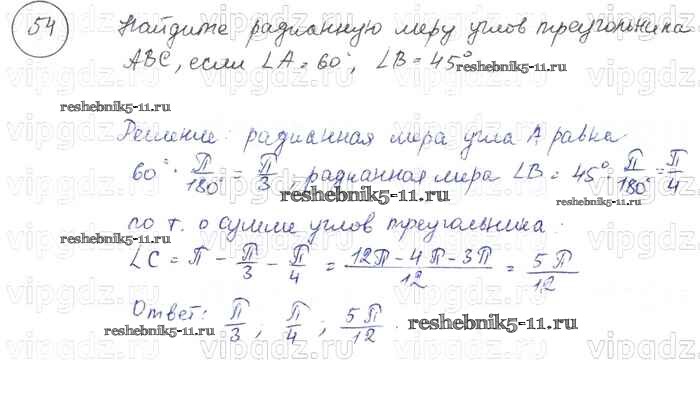 54 Найдите радианную меру углов треугольника
ABC, если ∠A = 60°, ∠B = 45°
reshebnik5-11.ru
reshebnik5-11.ru
Решение: радианная мера угла A равна
60° · П/180° = П/3, радианная мера ∠B = 45° · П/180° = П/4
reshebnik5-11.ru
по т. о сумме углов треугольника:
reshebnik5-11.ru
∠C = П - П/3 - П/4 = (12П - 4П - 3П)/12 = 5П/12
Ответ: П/3, П/4; 5П/12.
reshebnik5-11.ru
reshebnik5-11.ru